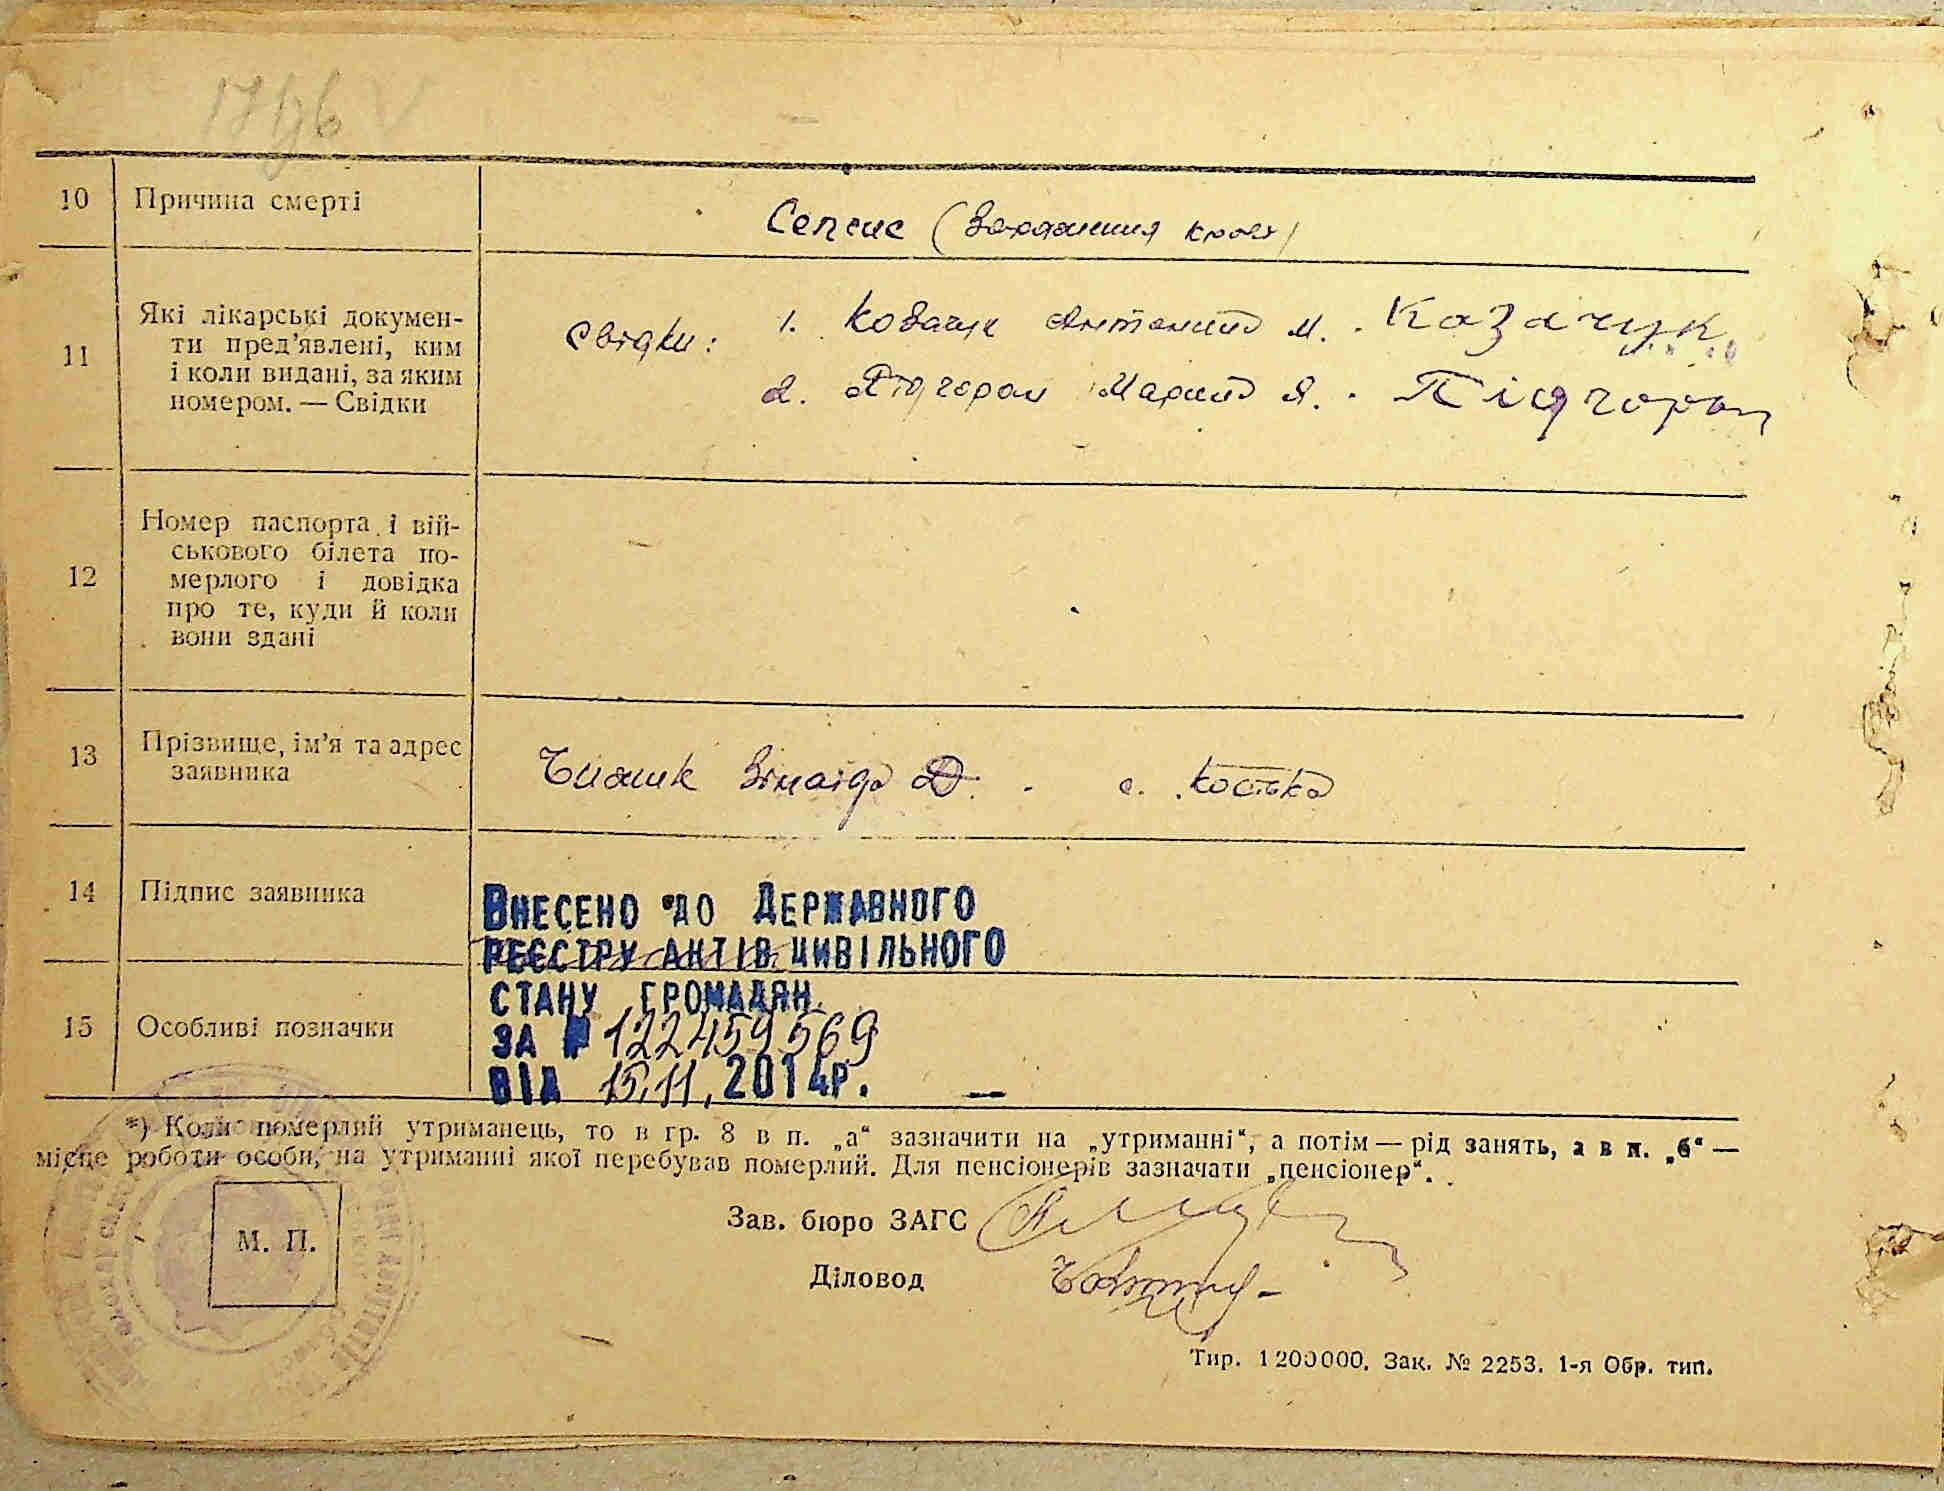 17
10 Причина смерті Сепсис (Зараження крові)
11 Які лікарські докумен-
ти пред'явлені, ким
і коли видані, за яким
номером. — Свідки
Свідки: 1. Козачук Антоній М. Казачук
2. Підгорой Марий Я. Підгорой
12 Номер паспорта і вій-
ськового білета по-
мерлого і довідка
про те, куди й коли
вони здані
13 Прізвище, ім'я та адрес
заявника
Зінаїда Д. с. Костька
14 Підпис заявника
ВНЕСЕНО ДО ДЕРЖАВНОГО
РЕЄСТРУ АКТІВ ЦИВІЛЬНОГО
СТАНУ ГРОМАДЯН
15 Особливі позначки
ЗА № 122459569
ВІД 15.11.2014Р. —
*) Коли померлий утриманець, то в гр. 8 в п. „а“ зазначити на „утриманні“, а потім — рід занять, а в п. „б“ —
місце роботи особи, на утриманні якої перебував померлий. Для пенсіонерів зазначати „пенсіонер“.
М. П.
Зав. бюро ЗАГС
Діловод
Тир. 1200000. Зак. № 2253. 1-я Обр. тип.